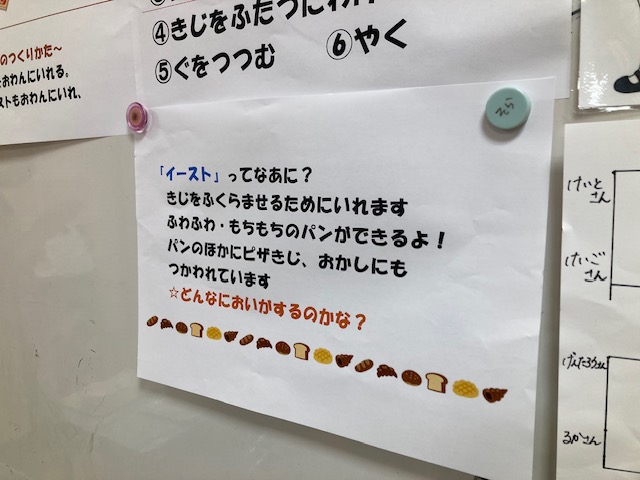 ④きじをふたつにわけ
⑤ぐをつつむ　⑥やく
のつくりかた～
おわんにいれる。
ストもおわんにいれ、
そら
「イースト」ってなあに？
きじをふくらませるためにいれます
ふわふわ・もちもちのパンができるよ！
パンのほかにピザきじ、おかしにも
つかわれています
☆どんなにおいがするのかな？
けいと
さん
けいご
さん
げんたろうさん
るかさん